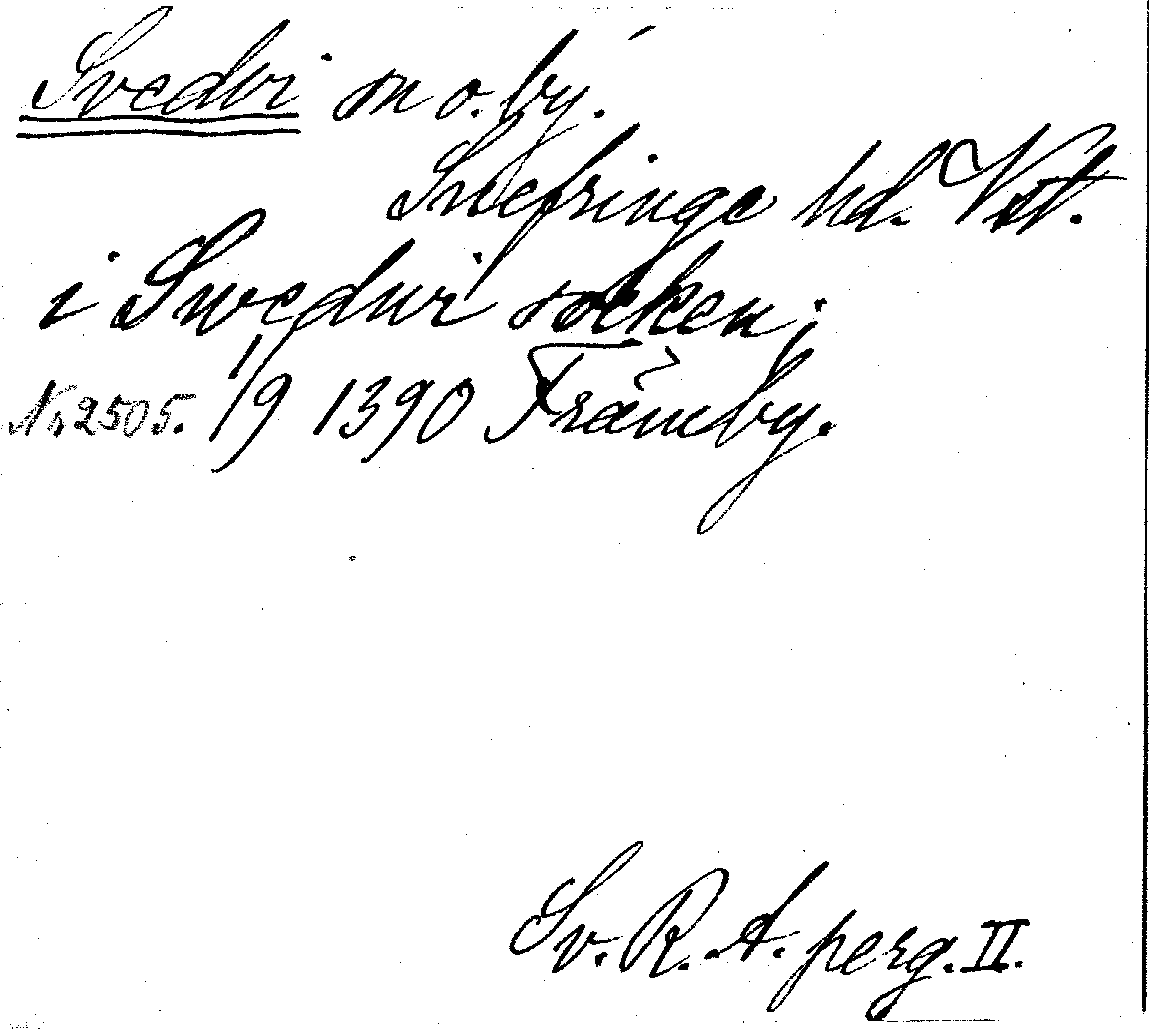 Svedvi sn o. by.
Snefringe hd. Vstl.
i Swedwi socken;
Nr 2505. 1/9 1390 Fråmby.
Sv. R. A. perg. II.